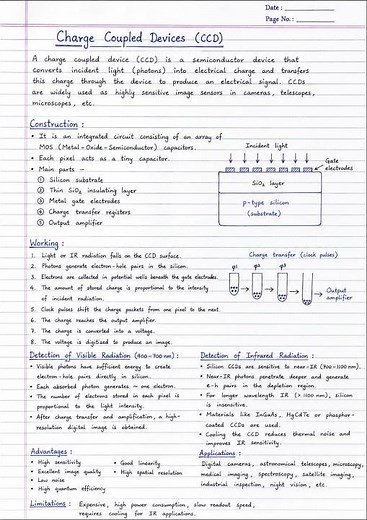 Date :
Page No. :
Charge Coupled Devices (CCD)
A charge coupled device (CCD) is a semiconductor device that
converts incident light (photons) into electrical charge and transfers
this charge through the device to produce an electrical signal. CCDs
are widely used as highly sensitive image sensors in cameras, telescopes,
microscopes, etc.
Construction :
• It is an integrated circuit consisting of an array of
MOS (Metal-Oxide-Semiconductor) capacitors.
• Each pixel acts as a tiny capacitor.
• Main parts –
① Silicon substrate
② Thin SiO₂ insulating layer
③ Metal gate electrodes
④ Charge transfer registers
⑤ Output amplifier
Incident light
Gate
electrodes
SiO₂ layer
p-type silicon
(substrate)
Working :
1. Light or IR radiation falls on the CCD surface.
2. Photons generate electron-hole pairs in the silicon.
3. Electrons are collected in potential wells beneath the gate electrodes.
4. The amount of stored charge is proportional to the intensity
of incident radiation.
5. Clock pulses shift the charge packets from one pixel to the next.
6. The charge reaches the output amplifier.
7. The charge is converted into a voltage.
8. The voltage is digitized to produce an image.
Charge transfer (clock pulses)
Output
amplifier
Detection of Visible Radiation (400-700 nm) :
• Visible photons have sufficient energy to create
electron-hole pairs directly in silicon.
• Each absorbed photon generates ~ one electron.
• The number of electrons stored in each pixel is
proportional to the light intensity.
• After charge transfer and amplification, a high-
resolution digital image is obtained.
Detection of Infrared Radiation :
• Silicon CCDs are sensitive to near-IR (700-1100 nm).
• Near-IR photons penetrate deeper and generate
e-h pairs in the depletion region.
• For longer wavelength IR (> 1100 nm), silicon
is insensitive.
• Materials like InGaAs, HgCdTe or phosphor-
coated CCDs are used.
• Cooling the CCD reduces thermal noise and
improves IR sensitivity.
Advantages :
• High sensitivity
• Excellent image quality
• Low noise
• High quantum efficiency
• Good linearity
• High spatial resolution
Applications :
Digital cameras, astronomical telescopes, microscopy,
medical imaging, spectroscopy, satellite imaging,
industrial inspection, night vision, etc.
Limitations : Expensive, high power consumption, slow readout speed,
requires cooling for IR applications.